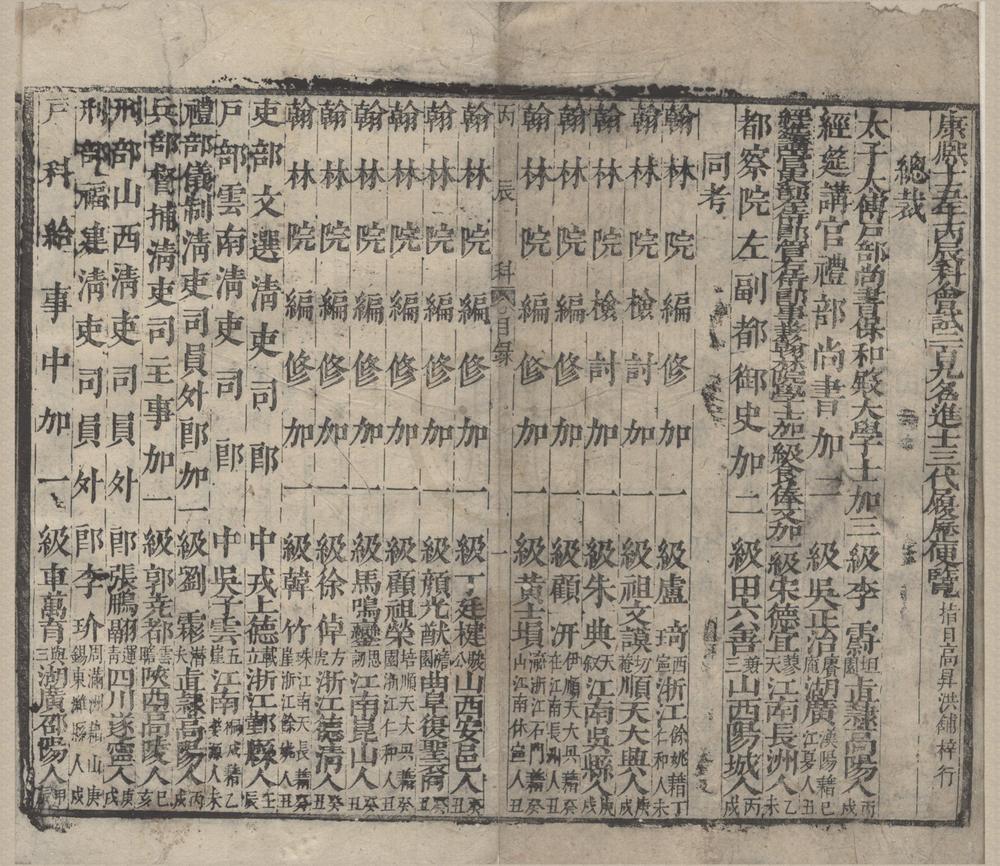 康熙十五年丙辰科會試二百九名進士三代履歷便覽 指日高昇洪鋪梓行
總裁
太子太傅戶部尚書保和殿大學士加三級李霨 坦園 直隸高陽人 丙戌
經筵講官禮部尚書加二級吳正治 賡庵 湖廣江夏人漢陽籍 己丑
經筵講官吏部左侍郎管右侍郎事兼翰林院學士加一級食俸又加一級宋德宜 蓼天 江南長洲人 乙未
都察院左副都御史加二級田六善 兼三 山西陽城人 丙戌
同考
翰林院編修加一級盧琦 西寧 浙江仁和人餘姚籍 丁未
翰林院檢討加一級祖文謨 切菴 順天大興人 庚戌
翰林院檢討加一級朱典 天敘 江南吳縣人 庚戌
翰林院編修加一級顧汧 伊在 江南長洲人順天大興籍 癸丑
翰林院編修加一級黃士塤 山 江南休寧人浙江石門籍 癸丑
丙辰科 目錄 一
翰林院編修加一級丁廷楗 駿公 山西安邑人 癸丑
翰林院編修加一級顏光猷 澹園 曲阜復聖裔 癸丑
翰林院編修加一級馬鳴鑾 思 江南崑山人 癸丑
翰林院編修加一級顧祖榮 培園 浙江仁和人順天大興籍 癸丑
翰林院編修加一級徐倬 方虎 浙江德清人 癸丑
翰林院編修加一級韓竹 殊崖 浙江餘姚人江南天長籍 癸丑
吏部文選清吏司郎中戎上德 載立 浙江鄞縣人 壬辰
戶部雲南清吏司郎中吳子雲 五崖 江南人桐城籍 乙未
禮部儀制清吏司員外郎加一級劉霖 夫 直隸高陽人 丙戌
兵部督捕清吏司主事加一級郭堯都 雲瞻 陝西高陵人 己亥
刑部山西清吏司員外郎張鵬翮 運青 四川遂寧人 庚戌
刑部福建清吏司員外郎李玠 周錫 東濰縣人滿洲籍山 庚戌
戶科給事中加一級車萬育 與三 湖廣邵陽人 甲辰